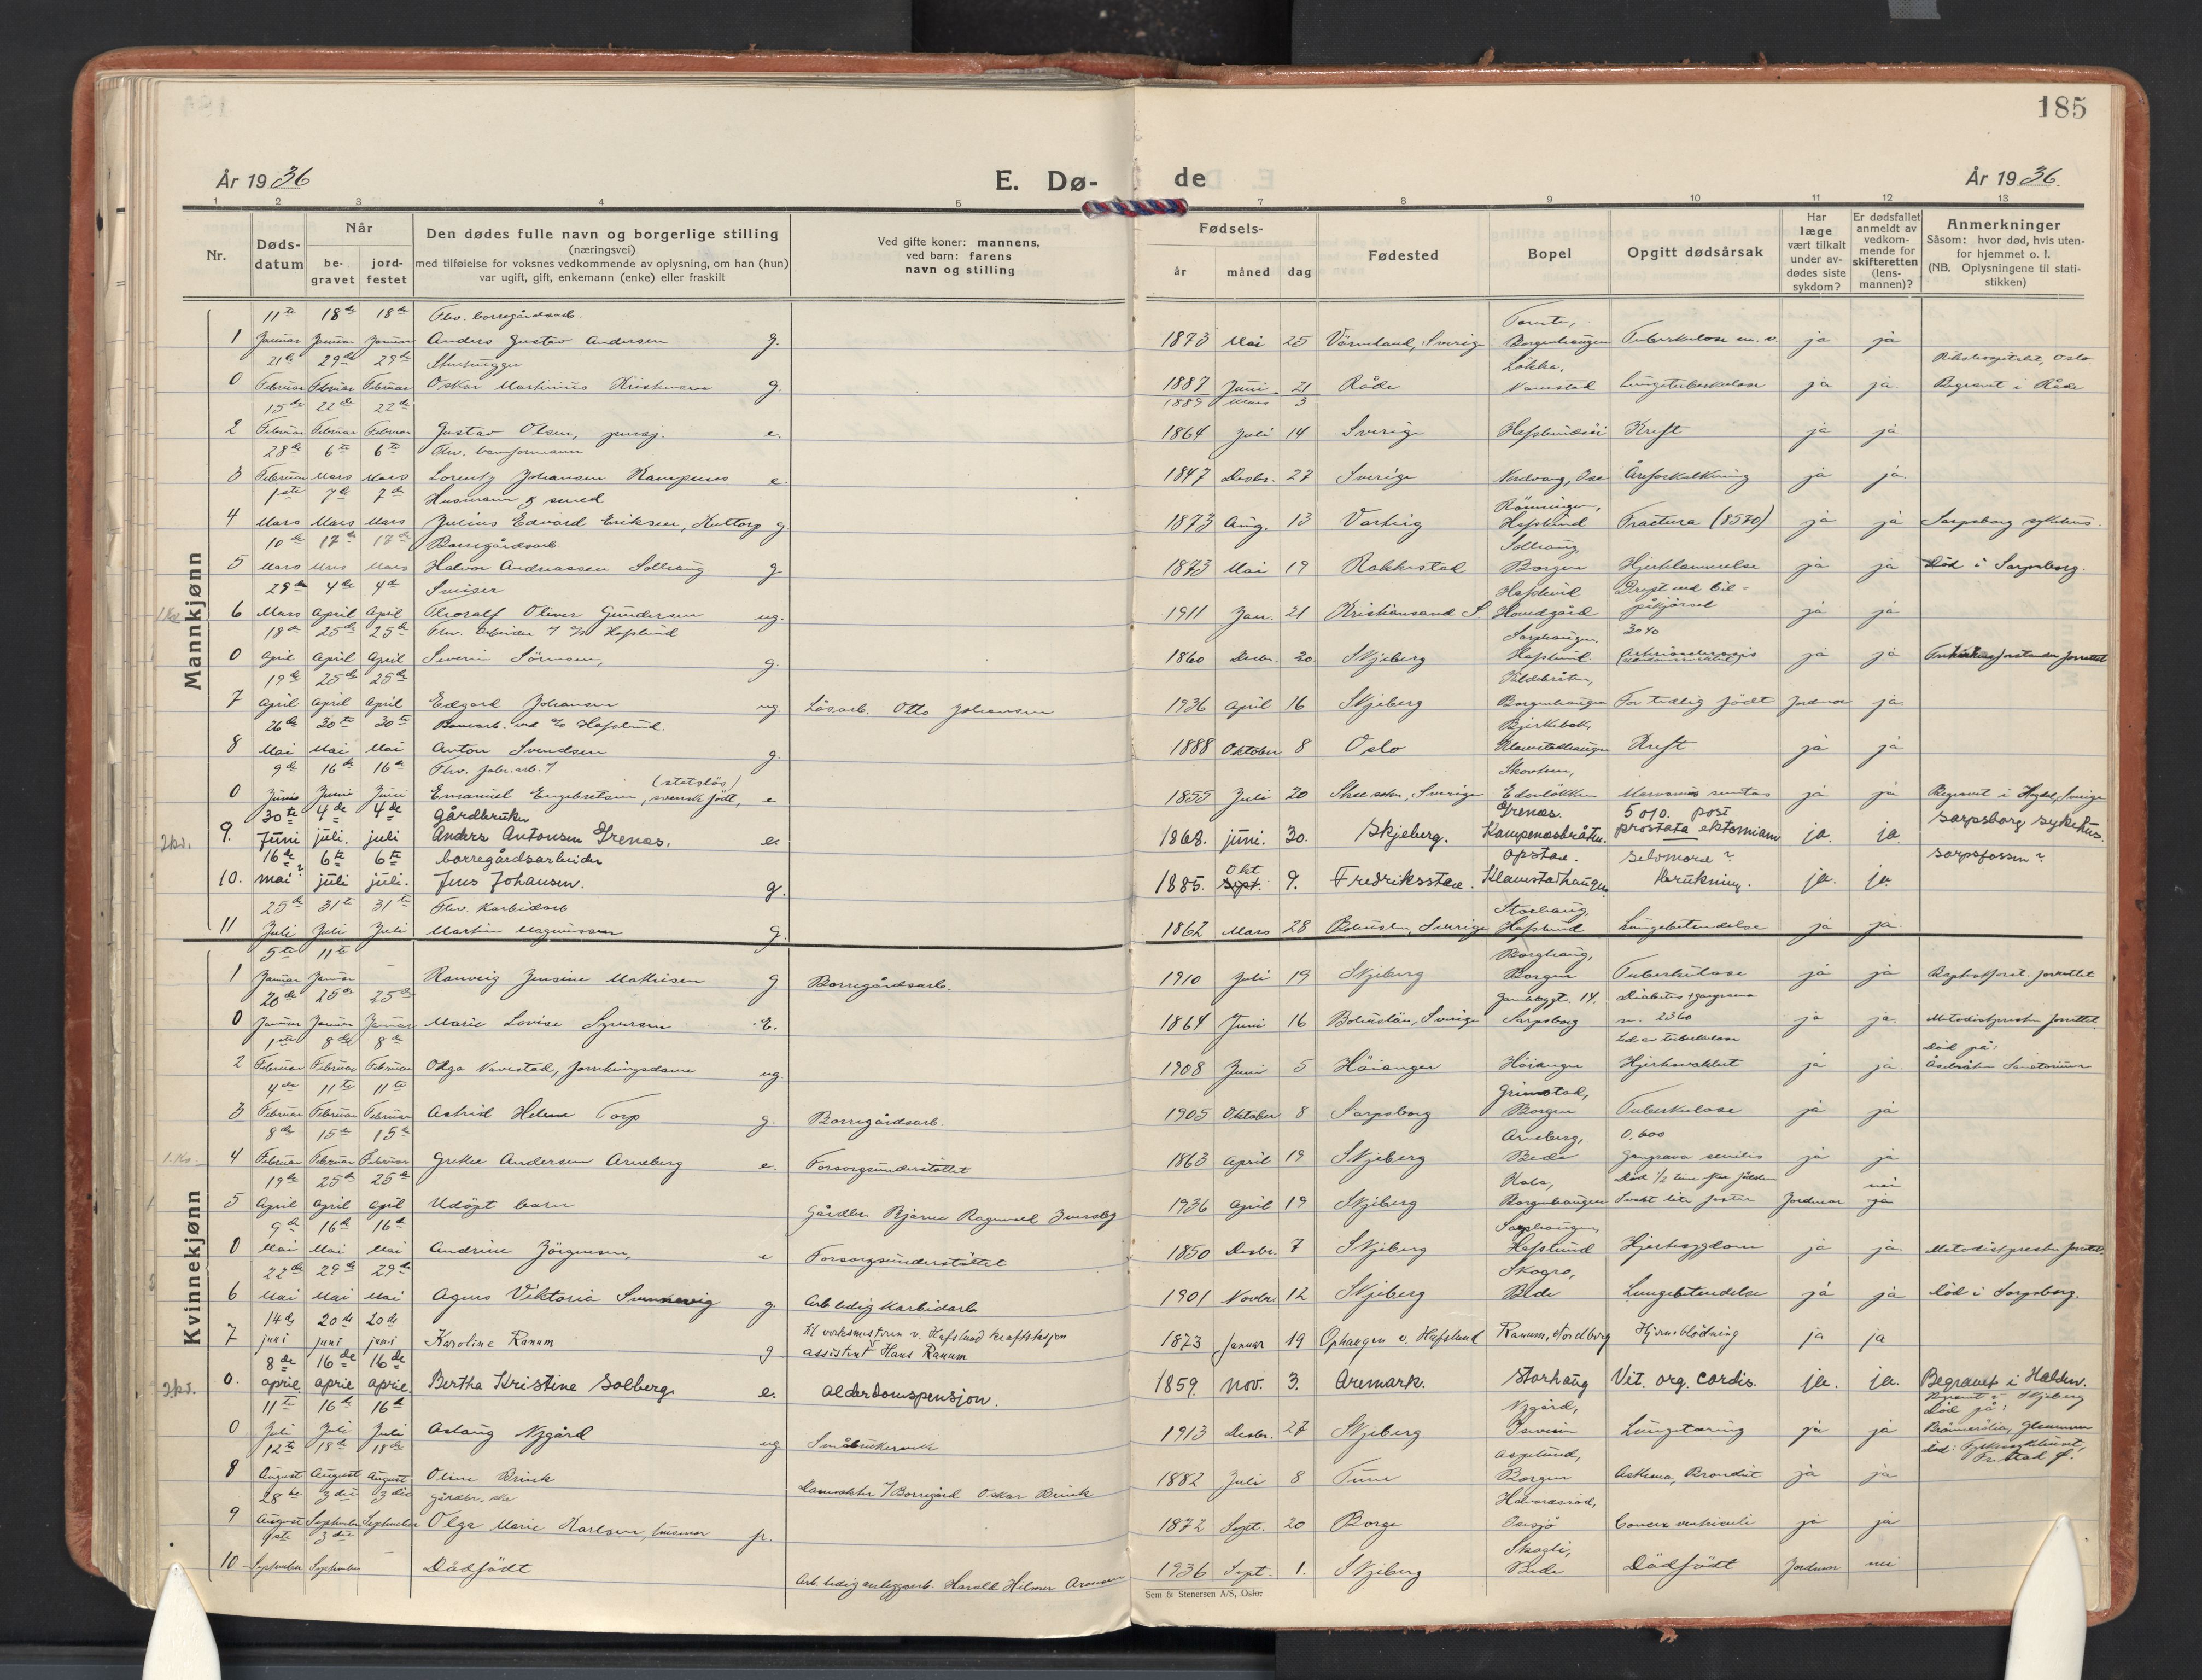 185
År 1936
E. Dø-
de
År 1936.
1 2 3 4 5 7 8 9 10 11 12 13
Nr.
Døds-
datum
Når
be-
gravet
jord-
festet
Den dødes fulle navn og borgerlige stilling
(næringsvei)
med tilføielse for voksnes vedkommende av oplysning, om han (hun)
var ugift, gift, enkemann (enke) eller fraskilt
Ved gifte koner: mannens,
ved barn: farens
navn og stilling
Fødsels-
år måned dag
Fødested
Bopel
Opgitt dødsårsak
Har
læge
vært tilkalt
under av-
dødes siste
sykdom?
Er dødsfallet
anmeldt av
vedkom-
mende for
skifteretten
(lens-
mannen)?
Anmerkninger
Såsom: hvor død, hvis uten-
for hjemmet o. l.
(NB. Oplysningene til stati-
stikken)
Mannkjønn
11te 18de 18de Fhv. borregårdsarb. Tomte,
1 Januar Januar Januar Anders Gustav Andersen g. 1873 Mai 25 Värmland, Sverige Borgenhaugen Tuberkulose m. v. ja ja
21de 29de 29de Stenhugger Løkka, Rikshospitalet, Oslo
0 Februar Februar Februar Oskar Martinius Kristiansen g. 1887 Juni 21 Råde Navestad Lungetuberkulose ja ja. Begravet i Råde
15de 22de 22de 1889 Mars 3
2 Februar Februar Februar Gustav Olsen, pensj. e. 1864 Juli 14 Sverige Hafslundsøi Kreft ja ja
28de 6te 6te Fhv. baneformann
3 Februar Mars Mars Lorentz Johansen Kampenes e. 1847 Desbr. 27 Sverige Nordvang, Ise Åreforkalkning ja ja.
1ste 7de 7de Husmann & smed Rönningen,
4 Mars Mars Mars Julius Edvard Eriksen, Kultorp g. 1873 Aug. 13 Varteig Hafslund Fractura (8570) ja ja Sarpsborg sykehus.
10de 17de 17de Borregårdsarb. Solhaug,
5 Mars Mars Mars Halvor Andreassen Solhaug g 1873 Mai 19 Rakkestad Borgen Hjertelammelse ja ja Död i Sarpsborg.
29de 4de 4de Sveiser Hafslund Drept ved bil-
6 Mars April April Thoralf Oliver Gundersen ug. 1911 Jan. 21 Kristiansand S. Hovedgård påkjørsel ja ja
18de 25de 25de Fhv. arbeider v/ A/S Hafslund Sarphaugen, 3040
0 April April April Severin Sörensen, g. 1860 Desbr. 20 Skjeberg Hafslund. Arteriosclerosis ja ja
19de 25de 25de
7 April April April Edgard Johansen ug. Løsarb. Otto Johansen 1936 April 16 Skjeberg Borgenhaugen For tidlig født Jordmor ja.
26de 30te 30te Banearb. ved A/S Hafslund. Bjerkebek,
8 Mai Mai Mai Anton Svendsen g 1888 Oktober 8 Oslo Klavestadhaugen Kreft ja ja
9de 16de 16de Fhv. fabr.arb. (statsløs) Skovheim,
0 Juni Juni Juni Emanuel Engebretsen, svensk født, e 1855 Juli 20 Sverige Edenløkken Marasmus senilis ja ja
30te 4de 4de Gårdbruker Grenås. 5010. post
2kv. 9. Juni juli. juli Anders Antonsen Grenås. e. 1868. juni. 30. Skjeberg. Kampenesbråten. prostata ektomiam ja. ja. Sarpsborg sykehus.
16de? 6te 6te borregårdsarbeider Opstad. Selvmord? Sarpsfossen?
10. mai juli juli. Jens Johansen. g. 1885. Okt 9. Fredriksstad. Klavestadhaugen Drukning. ja. ja.
25de 31te 31te Fhv. Karbidarb Storhaug,
11 Juli Juli Juli Martin Magnussen g. 1862 Mars 28 Bohuslän, Sverige Hafslund Lungebetendelse ja ja
Kvinnekjønn
5te 11te Borghaug,
1 Januar Januar – Ranveig Jensine Mathisen g Borregårdsarb. 1910 Juli 19 Skjeberg Borgen Tuberkulose ja ja Baptistforst. forrettet
20de 25de 25de Gamlebygt. 14. Diabetes + gangrena
0 Januar Januar Januar Marie Lovise Syversen E. 1864 Juni 16 Bohuslän, Sverige Sarpsborg n. 2360 ja ja. Metodistpresten forrettet
1ste 8de 8de Led av tuberkulose Död på:
2 Februar Februar Februar Olga Navestad, forretningsdame ug. 1908 Juni 5 Höianger Höianger Hjertesvakhet ja ja. Åsebråten Sanatorium
4de 11te 11te Grimstad,
3 Februar Februar Februar Astrid Helene Torp g. Borregårdsarb. 1905 Oktober 8 Sarpsborg Borgen Tuberkulose ja ja
8de 15de 15de Arneberg, 0.600
4 Februar Februar Februar Grethe Andersen Arneberg e. Forsorgsunderstøttet 1863 April 19 Skjeberg Bede Gangrena senilis ja ja
19de 25de 25de Död 1/2 time efter födselen nei
5 April April April Udøpt barn Gårdbr. Bjarne Ragnvald Iversby 1936 April 19 Skjeberg Borgenhaugen Jordmor ja
9de 16de 16de Sarphaugen,
0 Mai Mai Mai Andrine Jörgensen, e Forsorgsunderstøttet 1850 Desbr. 7 Skjeberg Hafslund Hjertesygdom ja ja. Metodistpresten forrettet
22de 29de 29de Skogro,
6 Mai Mai Mai Agnes Viktoria Sunnevig g. Arb.ledig Karbidarb 1901 Novbr. 12 Skjeberg Bede Lungebetendelse ja ja Död i Sarpsborg.
14de 20de 20de til verksmesteren v. Hafslund kraftstasjon
7 juni juni juni Karoline Ranum g assistent Hans Ranum 1873 Januar 19 Ophaugen v. Hafslund Ranum, Nordberg Hjerneblödning ja ja
8de 16de 16de
2kv. 0. april april april. Bertha Kristine Solberg. e. Alderdomspensjon. 1859. Nov. 3. Aremark. Storhaug Vit. org. cordis. ja. ja. Begravet i Halden.
11te 16de 16de Nygård, Begravet i Skjeberg
Död på:
0 Juli Juli Juli Aslaug Nygård ug Småbruker 1913 Desbr. 27 Skjeberg Lungetæring ja ja Glemmen
12te 18de 18de Aspelund,
8 August August August Oline Brink Oskar Brink 1882 Juli 8 Tune Borgen Asthma, Bronchit ja ja
28de 3die 3die Gårdbr. Halvardsrød,
9 August September September Olga Marie Karlsen, husmor fr. 1872 Sept. 20 Borge Isesjø Cancer ventriculi ja ja
1ste 3die Skogli,
10 September September – Dødfødt Arb.ledig anleggsarb. Harald Hilmar Aronsen 1936 Sept. 1. Skjeberg Bede Dödfödt Jordmor nei
Sem & Stenersen A/S, Oslo.